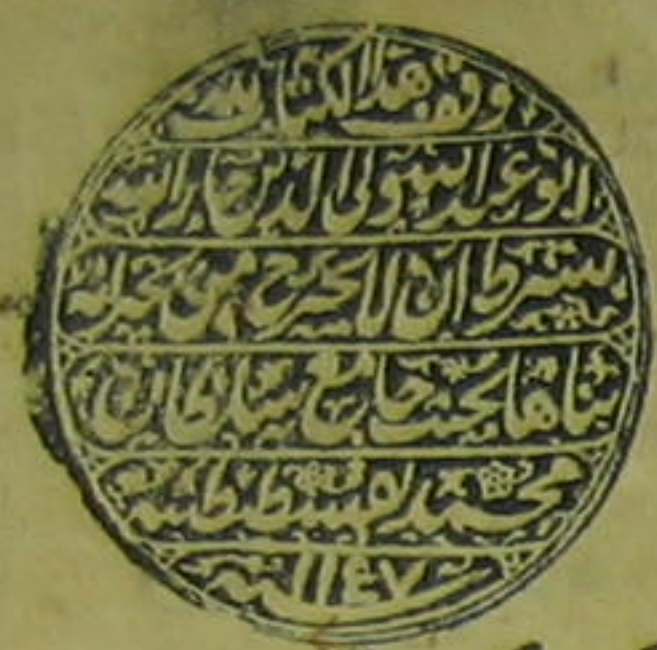 وقف هذا الكتاب
ابو عبد الله ولي الدين جار الله
بشرط ان لا يخرج من خزانة
بناها بجنب جامع سلطان
محمد بقسطنطينية
سنة ١١٤٧